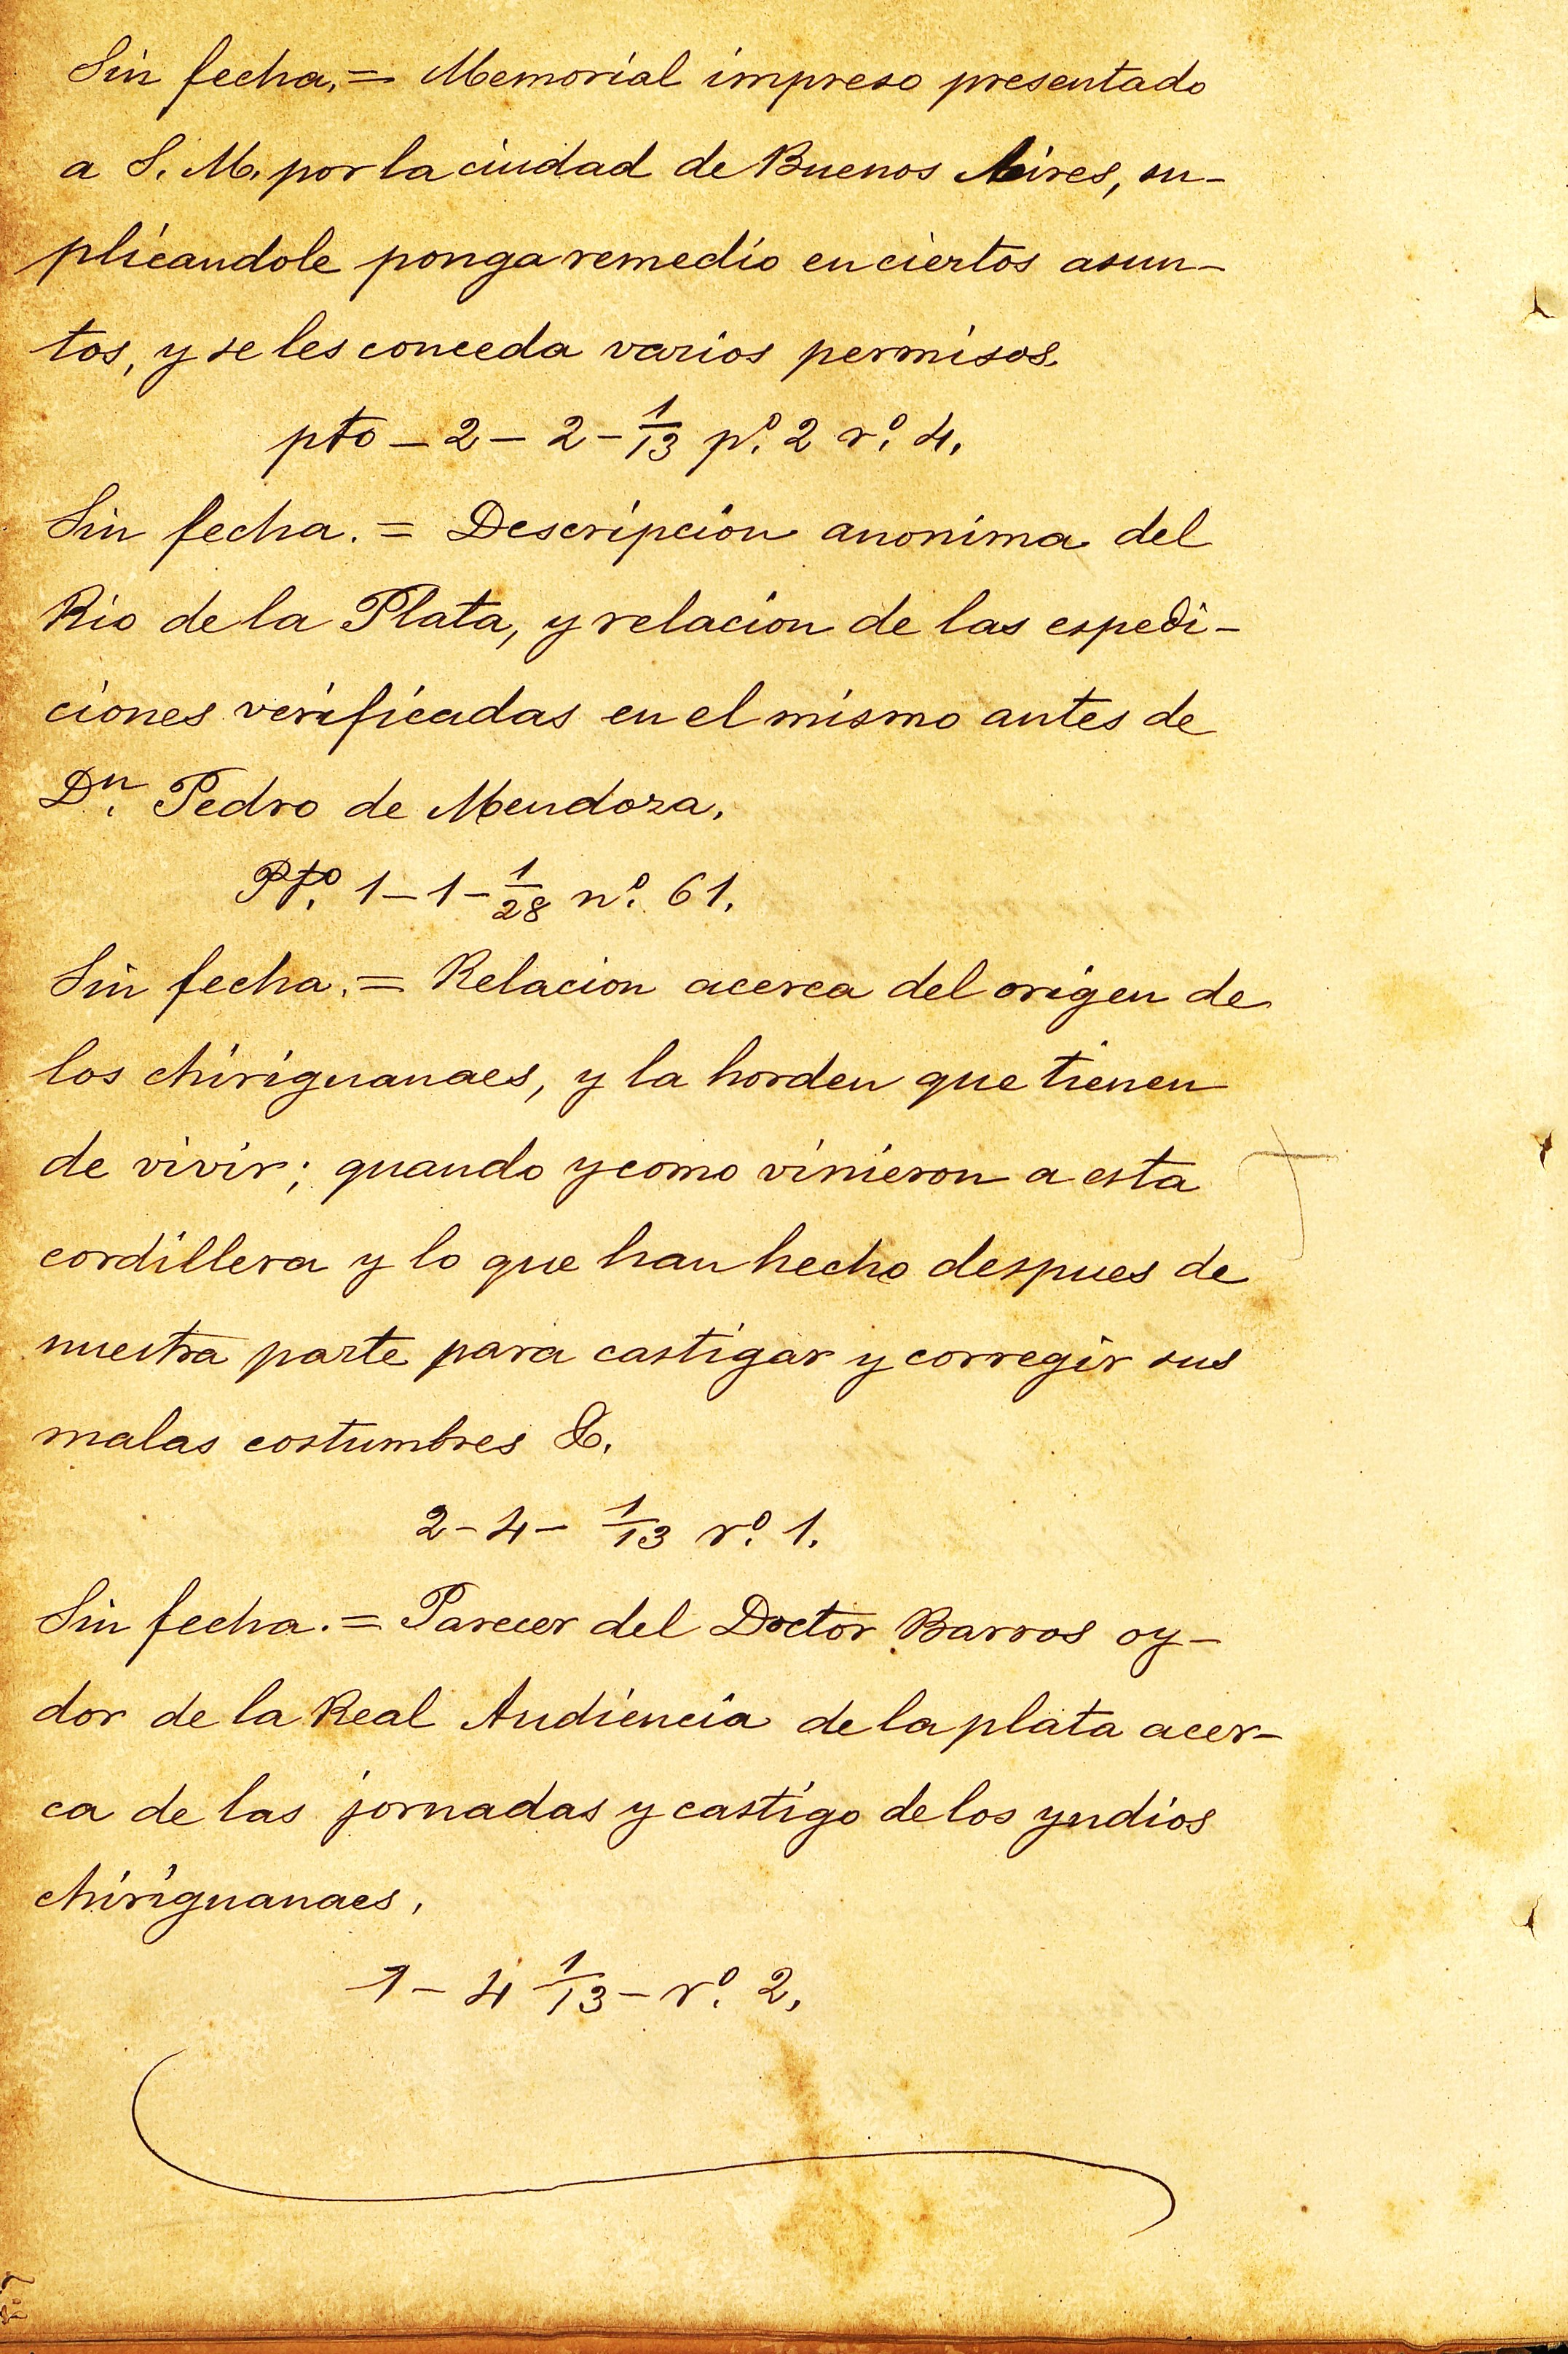 Sin fecha.= Memorial impreso presentado
a S. M. por la ciudad de Buenos Aires, su-
plicandole ponga remedio en ciertos asun-
tos, y se les conceda varios permisos.
pto - 2 - 2 - 1/13 pº. 2 rº. 4.
Sin fecha. = Descripcion anonima del
Rio de la Plata, y relacion de las espedi-
ciones verificadas en el mismo antes de
Dn. Pedro de Mendoza.
Ptº. 1-1-1/28 nº. 61.
Sin fecha. = Relacion acerca del origen de
los chiriguanaes, y la horden que tienen
de vivir; quando y como vinieron a esta
cordillera y lo que han hecho despues de
nuestra parte para castigar y corregir sus
malas costumbres &.
2-4- 1/13 rº. 1.
Sin fecha. = Parecer del Doctor Barros oy-
dor de la Real Audiencia de la plata acer-
ca de las jornadas y castigo de los yndios
chiriguanaes.
1-4 1/13 - rº. 2.